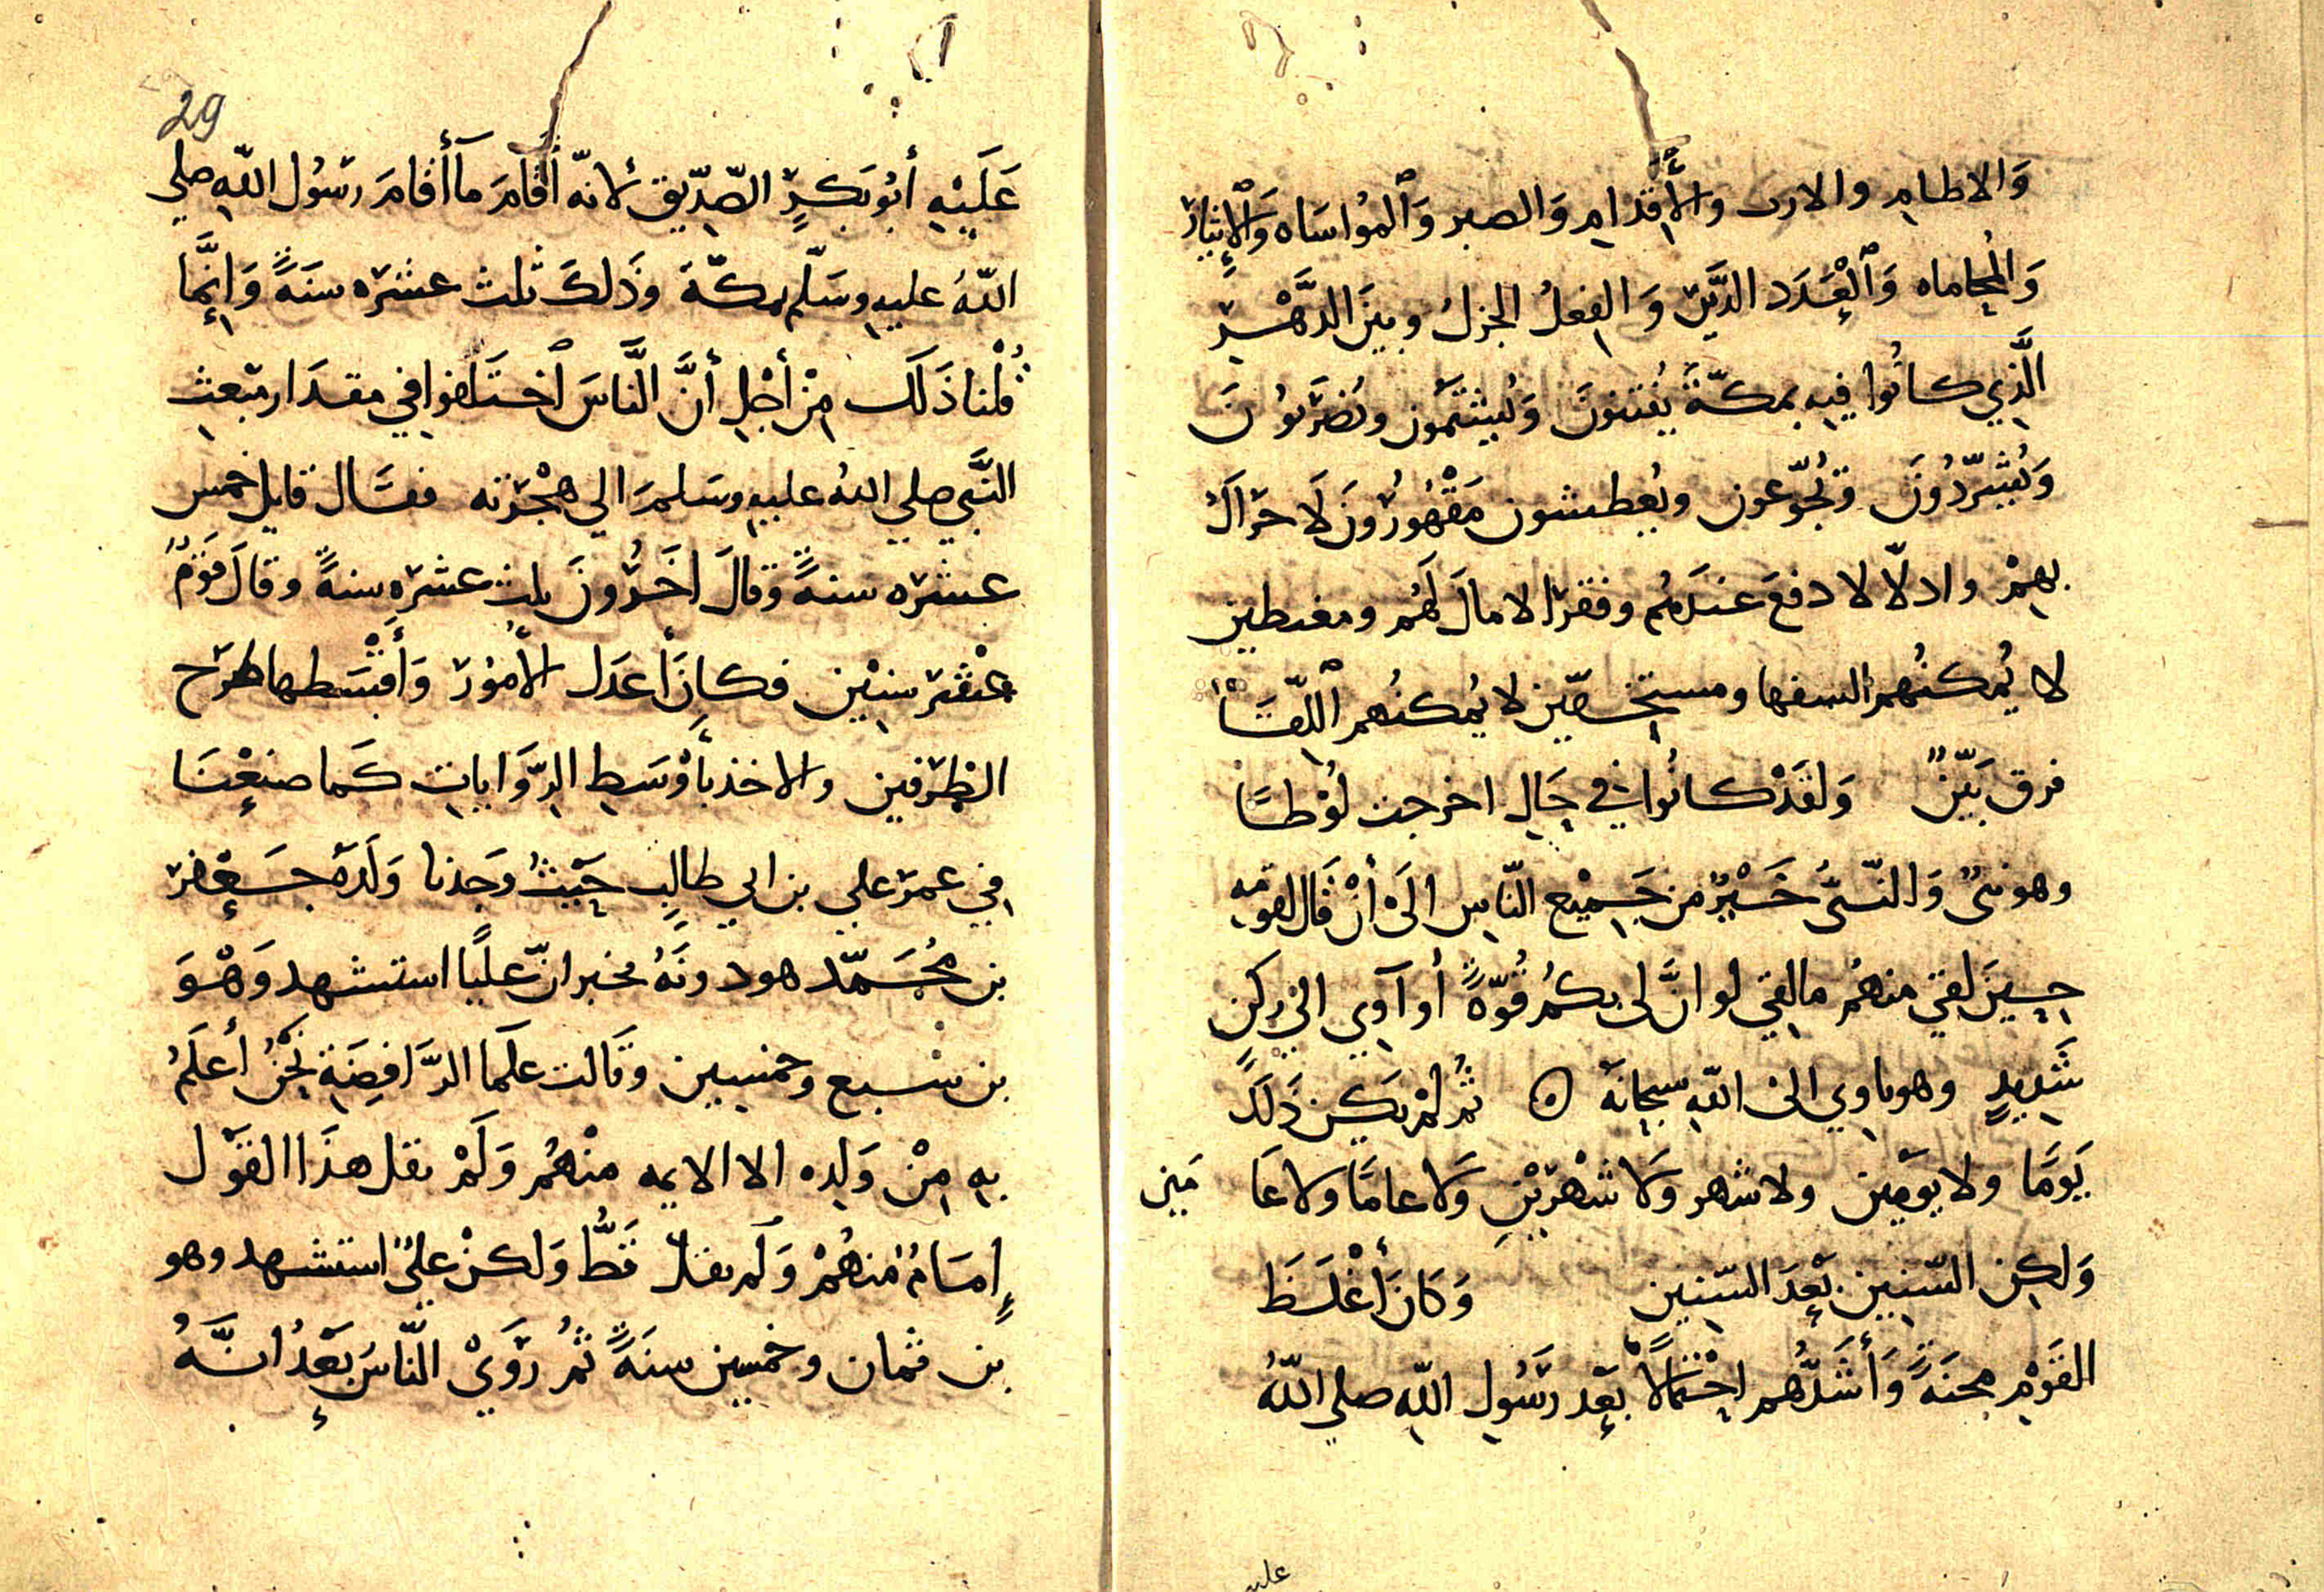 وَالاطامِ والارت والأقدامِ وَالصبر وَٱلمؤاسَاه وَٱلإيثار
وَالمُحاماه وَٱلْعَدَد الدَّثِر وَالفِعلُ الجزلُ وبينَ الدَّهْرِ
الَّذِي كانُوا فِيه بمكّةَ يُفتنونَ وَيُشتمُون ويُضرَبوُنَ
وَيُشَرَّدُونَ وَتُجَوَّعون ويُعطشون مَقْهُورُونَ لَا حَرَاكَ
بهِمْ واذلّا لا دفعَ عندَهُم وفقرَا لا مالَ لَهُم ومغتطين
لا يُمكنُهم السفها ومستخفّين لا يُمكنُهم ٱللّقَا
فرق بَيّنٌ وَلقدْ كانُوا في حَالٍ اخرجت لُوْطًا
وهو نبىٌ وَالنّبىُّ خَيْرٌ من جَمِيْع النّاسِ الَىْ أنْ قَال لقومِه
حِينَ لقِيَ منهُم ما لقِي لو انَّ لى بكُمُ قُوّةً أو آوِي الي ركنٍ
شَدِيدٍ وهو ياوِي الى اللّهِ سبحانَه ۞ ثُمّ لمْ يكن ذَلكَ
يَومًا ولا يَومَين ولا شهر وَلا شهْرَيْنِ وَلا عامًا ولا عَا مَين
وَلكِن السّنِين بَعدَ السّنِين وَكَانَ أغْلَظَ
القَوْمِ محنَةً وَأشَدُّهم احْتمالًا بَعدَ رَسُولِ اللّهِ صلي اللّهُ
عليه
29
عَلَيْهِ أبُو بَكرٍ الصِّدِّيق لانّه أقَامَ مَا أقامَ رَسُول اللّهِ صلي
اللّهُ عليهِ وسَلّم بمكّةَ وَذَلكَ ثلث عشرَه سنَةً وَإنَّما
قُلْنا ذَلَك مِنْ أجْلِ أنَّ النَّاسَ ٱختَلفوا في مقدَار مَبعثِ
النَّبيِّ صلي اللهُ عليهِ وسَلمَ الي هِجْرَته فقَال قايل خمس
عشرَه سنةً وَقالَ اخَرُونَ ثلث عشرَه سنةً وقالَ قَوَمٌ
عَشْر سِنِيْن فكان أعدَل الأمُورِ وَأقْسَطها طَرْح
الطرَفين والاخذ بأوْسَطِ الرِّوَاياتِ كَما صنعْنَا
فِي عمر علي بن ابي طالبٍ حَيْثُ وَجَدنا وَلَدَهُ جَعْفر
بن مُحَمّد هود ونَهُ مخبر انّ عليًا استشهد وَهْوَ
بن سْبع وخمسين وقَالت علَما الرَّافِضَةِ نَحْنُ أعلَمُ
بهِ مِنْ وَلدِه الا الايمه منْهُم وَلَمْ نقل هذَا القَوْل
إِمَامٌ منهُمْ وَلم نقل قَطُّ وَلكنْ عليٌ استشهد وهو
بن ثمان وخمسين سنَةً ثُمَّ رَوَيْ النّاسَ بَعْدُ انَّهُ